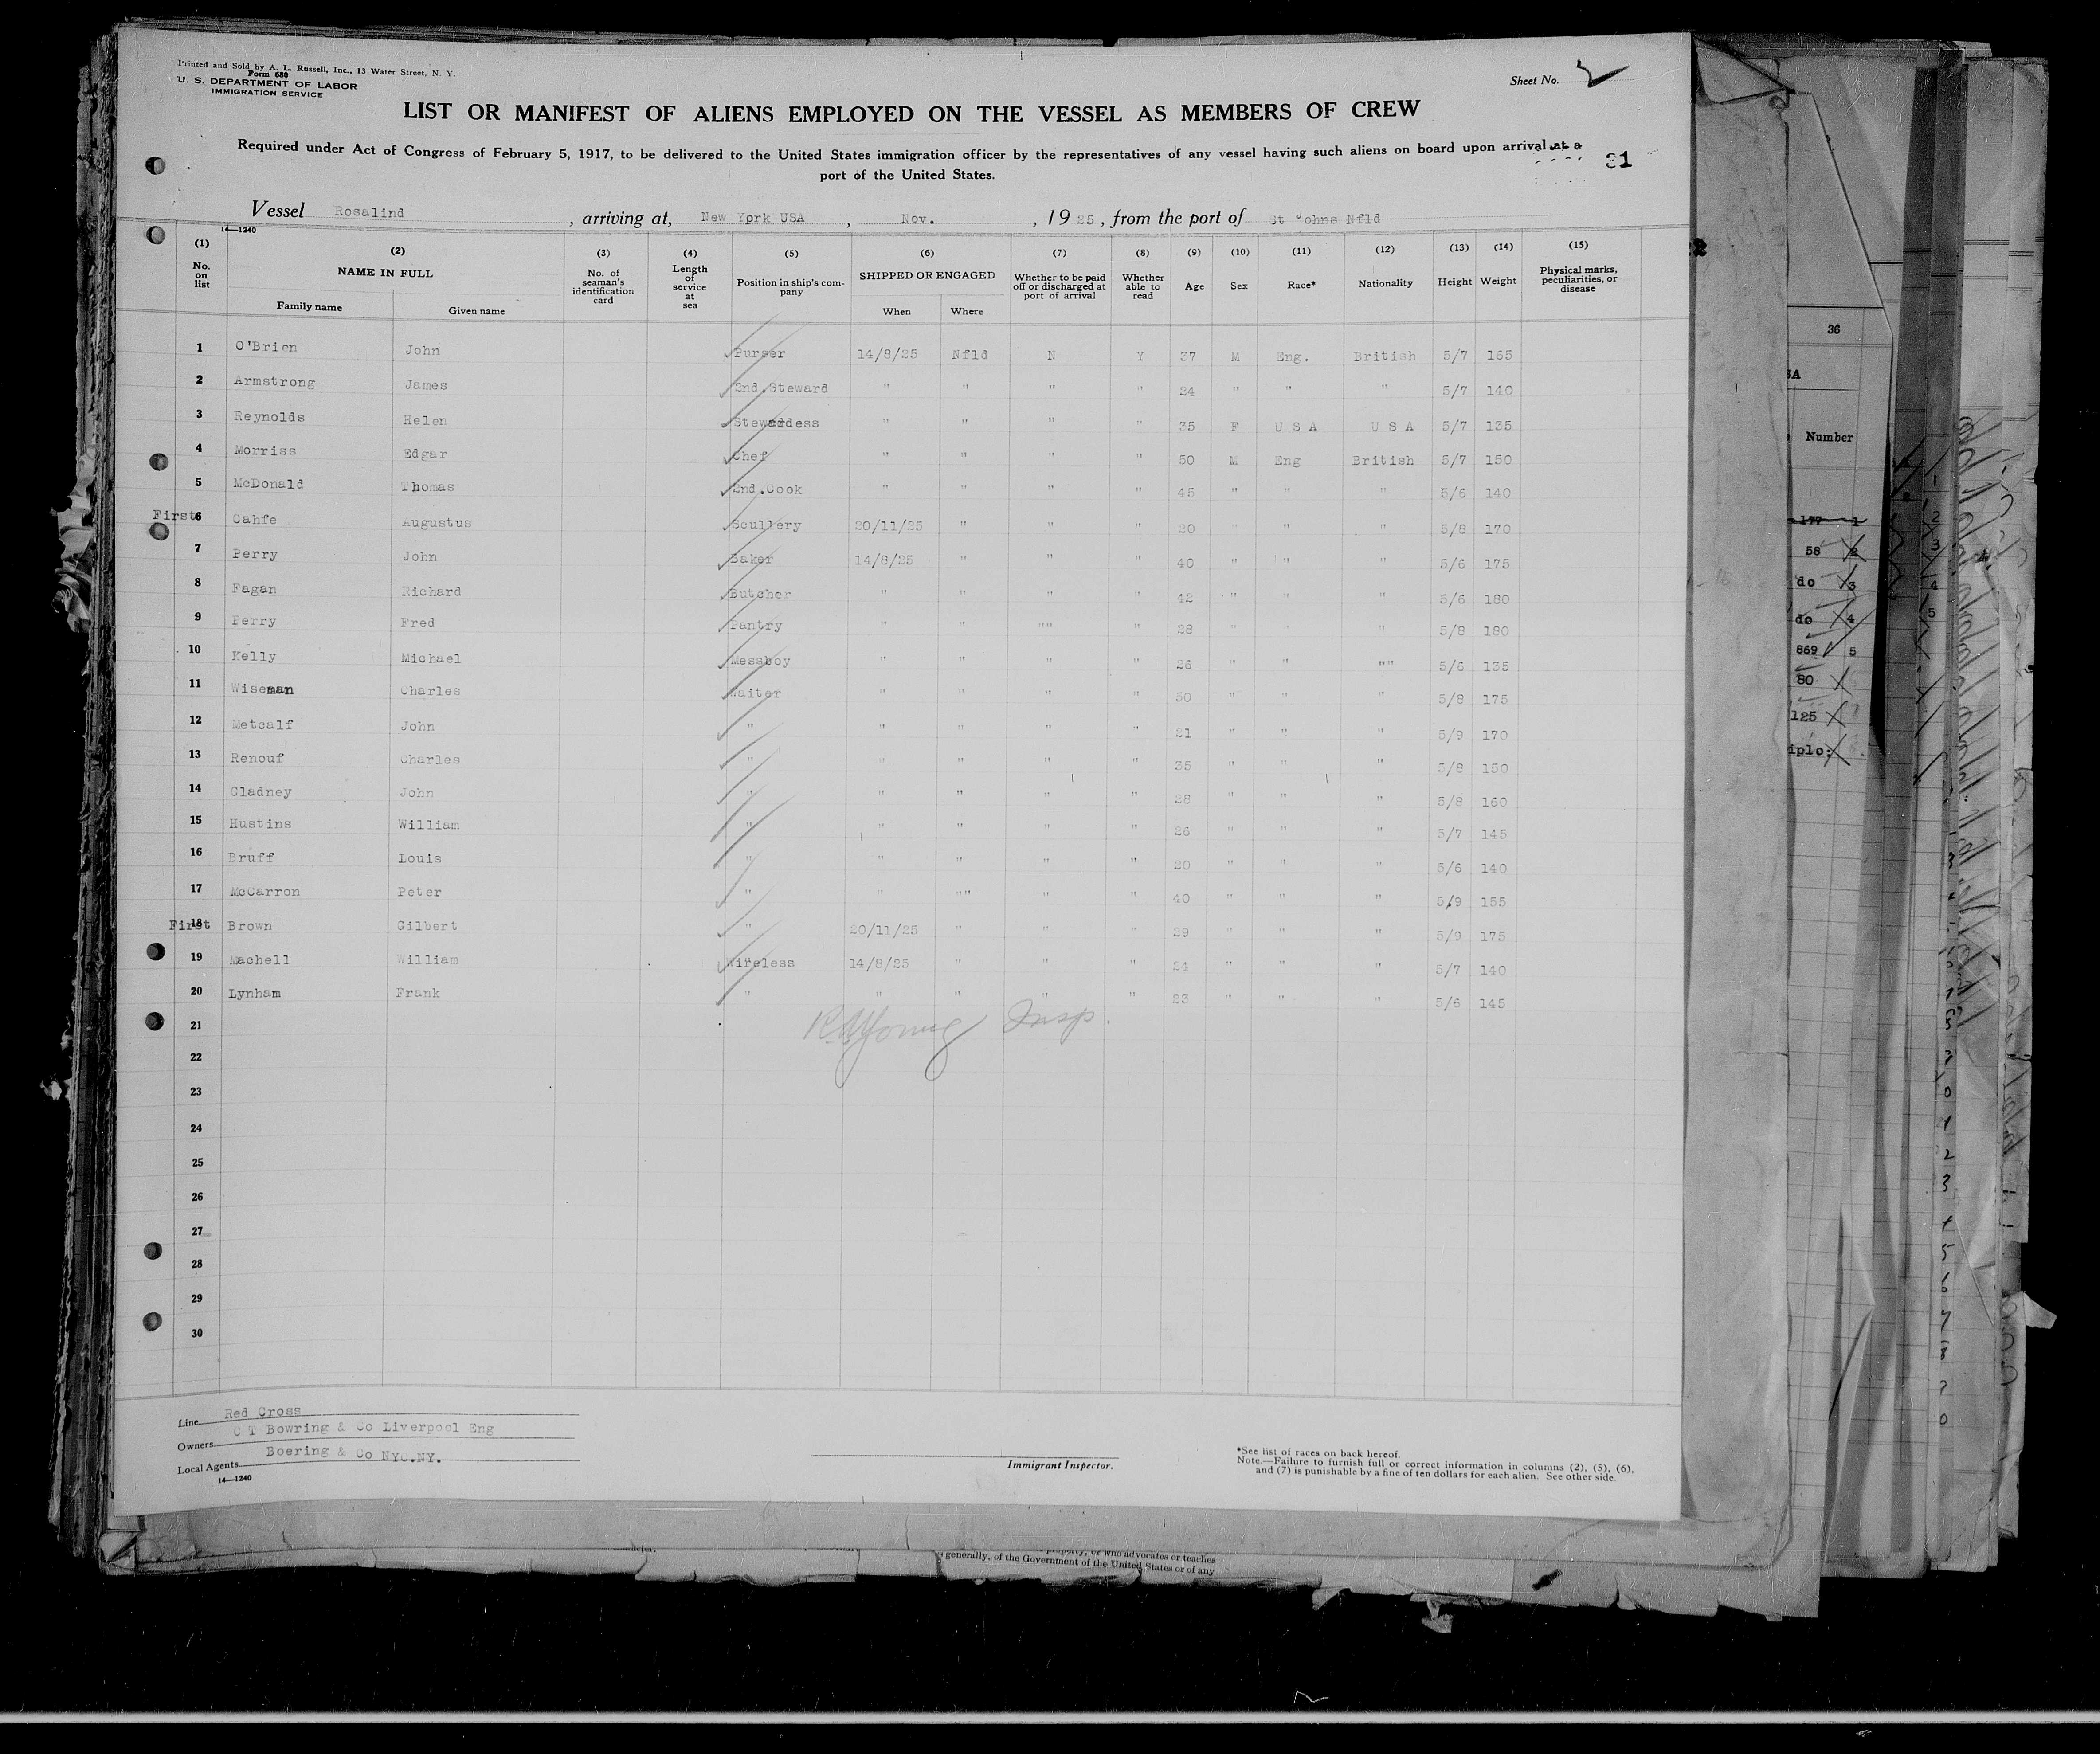 Printed and Sold by A. L. Russell, Inc., 13 Water Street, N. Y.
Form 680
U. S. DEPARTMENT OF LABOR
IMMIGRATION SERVICE
Sheet No. 2
LIST OR MANIFEST OF ALIENS EMPLOYED ON THE VESSEL AS MEMBERS OF CREW
Required under Act of Congress of February 5, 1917, to be delivered to the United States immigration officer by the representatives of any vessel having such aliens on board upon arrival at a
port of the United States.
31
Vessel Rosalind, arriving at, New York USA, Nov., 1925, from the port of St Johns Nfld
14—1240
(1) (2) (3) (4) (5) (6) (7) (8) (9) (10) (11) (12) (13) (14) (15)
No. on list NAME IN FULL No. of seaman's identification card Length of service at sea Position in ship's company SHIPPED OR ENGAGED Whether to be paid off or discharged at port of arrival Whether able to read Age Sex Race* Nationality Height Weight Physical marks, peculiarities, or disease
Family name Given name When Where
1 O'Brien John Purser 14/8/25 Nfld N Y 37 M Eng. British 5/7 165
2 Armstrong James 2nd.Steward " " " " 24 " " " 5/7 140
3 Reynolds Helen Stewardess " " " " 35 F U S A U S A 5/7 135
4 Morriss Edgar Chef " " " " 50 M Eng British 5/7 150
5 McDonald Thomas 2nd.Cook " " " " 45 " " " 5/6 140
First 6 Cahfe Augustus Scullery 20/11/25 " " " 20 " " " 5/8 170
7 Perry John Baker 14/8/25 " " " 40 " " " 5/6 175
8 Fagan Richard Butcher " " " " 42 " " " 5/6 180
9 Perry Fred Pantry " " "" " 28 " " " 5/8 180
10 Kelly Michael Messboy " " " " 26 " " "" 5/6 135
11 Wiseman Charles Waiter " " " " 50 " " " 5/8 175
12 Metcalf John " " " " " 21 " " " 5/9 170
13 Renouf Charles " " " " " 35 " " " 5/8 150
14 Cladney John " " " " " 28 " " " 5/8 160
15 Hustins William " " " " " 26 " " " 5/7 145
16 Bruff Louis " " " " " 20 " " " 5/6 140
17 McCarron Peter " " "" " " 40 " " " 5/9 155
First 18 Brown Gilbert " 20/11/25 " " " 29 " " " 5/9 175
19 Machell William Wireless 14/8/25 " " " 24 " " " 5/7 140
20 Lynham Frank " " " " " 23 " " " 5/6 145
21
Young Insp.
22
23
24
25
26
27
28
29
30
Line Red Cross
Owners C T Bowring & Co Liverpool Eng
Local Agents Boering & Co NYC.NY.
14—1240
Immigrant Inspector.
*See list of races on back hereof.
Note.—Failure to furnish full or correct information in columns (2), (5), (6),
and (7) is punishable by a fine of ten dollars for each alien. See other side.
36
Number
58
do 3
do 4
869 5
80
125
generally, of the Government of the United States or of any
property, or who advocates or teaches